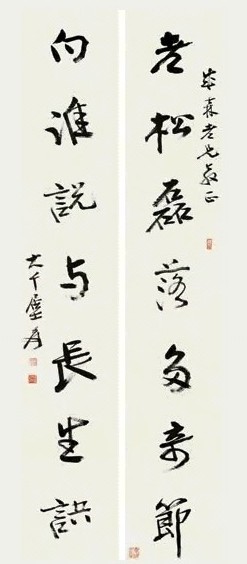 森老兄教正
老松磊落多奇節
向誰説与長生訣
大千居士爰